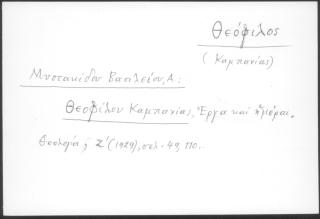 Θεόφιλος
(Καμπανίας)
Μυστακίδου Βασιλείου, Α:
Θεοφίλου Καμπανίας, Ἔργα καὶ ἡμέραι.
Θεολογία, Ζ' (1929), σελ. 49, 110.